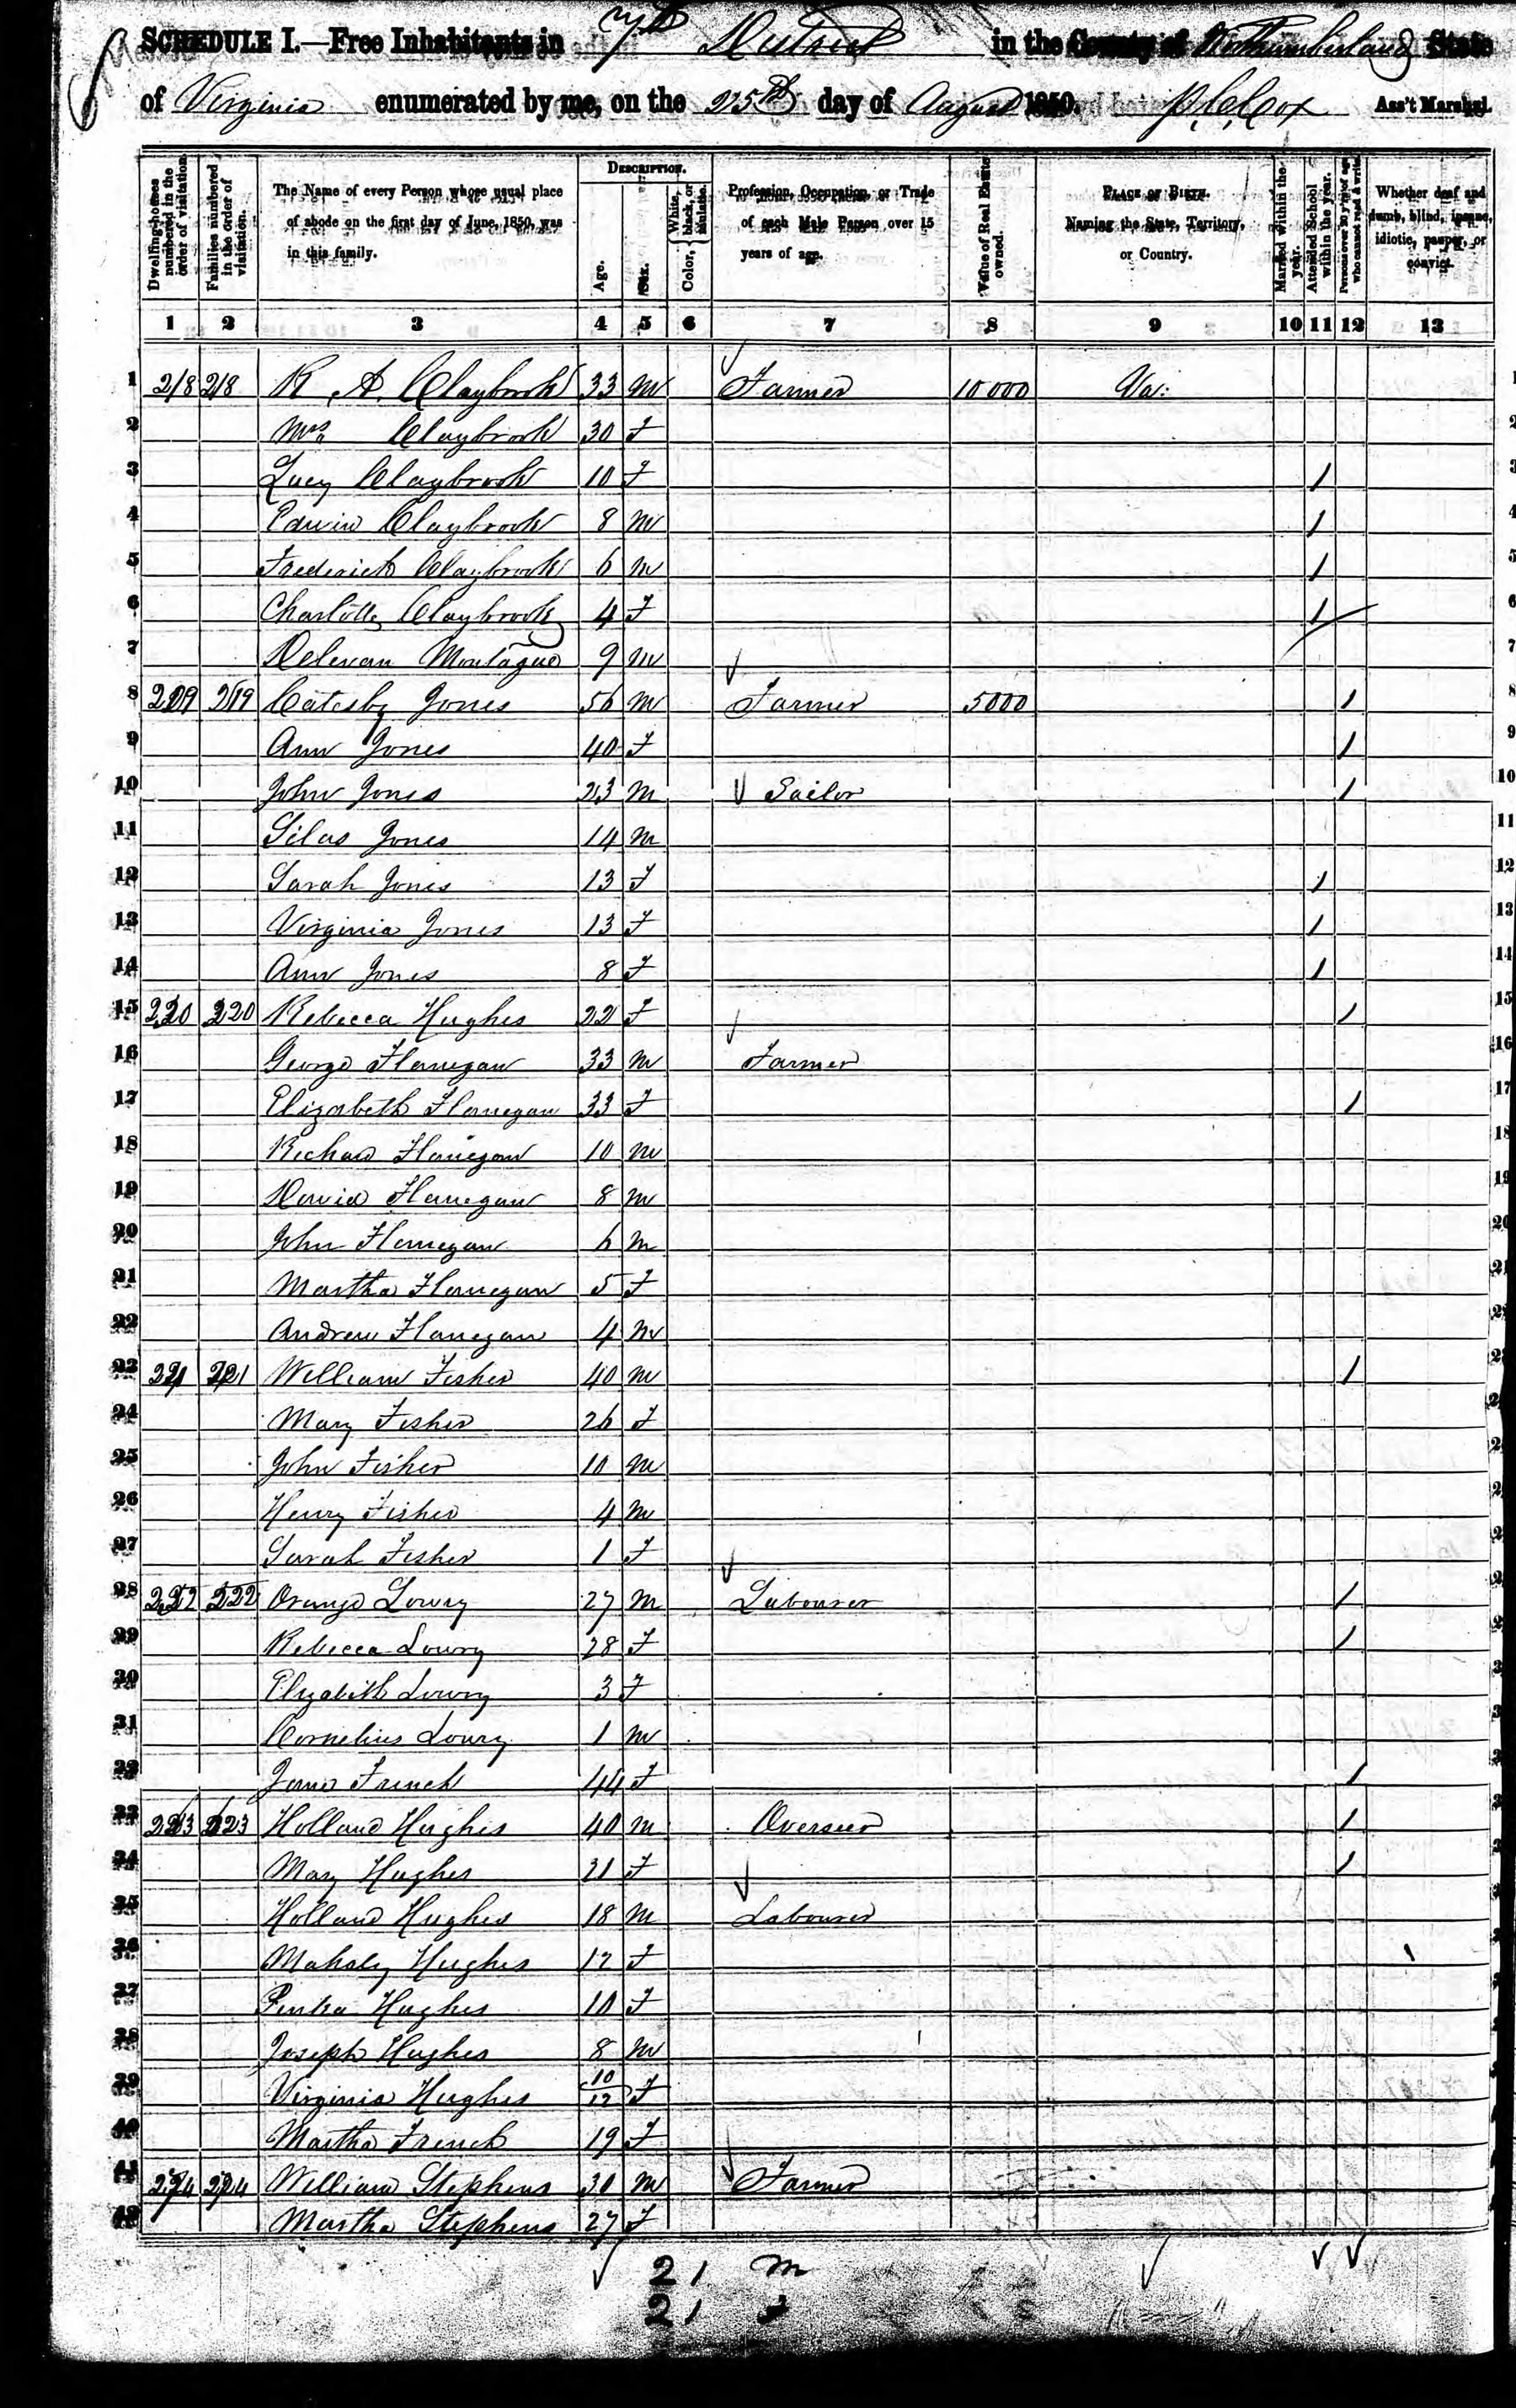 SCHEDULE I.—Free Inhabitants in 7th District in the County of Northumberland State
of Virginia enumerated by me, on the 25th day of August 1850. P. C. Cox Ass't Marshal.
Dwelling-houses numbered in the order of visitation.
Families numbered in the order of visitation.
The Name of every Person whose usual place of abode on the first day of June, 1850, was in this family.
DESCRIPTION.
Age.
Sex.
Color, { White, black, or mulatto.
Profession, Occupation, or Trade of each Male Person over 15 years of age.
Value of Real Estate owned.
PLACE OF BIRTH. Naming the State, Territory, or Country.
Married within the year.
Attended School within the year.
Persons over 20 y'rs of age who cannot read & write.
Whether deaf and dumb, blind, insane, idiotic, pauper, or convict.
1 2 3 4 5 6 7 8 9 10 11 12 13
1 218 218 R. A. Claybrook 33 M Farmer 10000 Va: 1
2 Mrs Claybrook 30 F 2
3 Lucy Claybrook 10 F / 3
4 Edwin Claybrook 8 M / 4
5 Frederick Claybrook 6 M / 5
6 Charlotte Claybrook 4 F / 6
7 Delevan Montague 9 M 7
8 219 219 Catesby Jones 56 M Farmer 5000 / 8
9 Ann Jones 40 F / 9
10 John Jones 23 M Sailor / 10
11 Silas Jones 14 M 11
12 Sarah Jones 13 F / 12
13 Virginia Jones 13 F / 13
14 Ann Jones 8 F / 14
15 220 220 Rebecca Hughes 22 F / 15
16 George Flanegan 33 M Farmer 16
17 Elizabeth Flanegan 33 F / 17
18 Richard Flanegan 10 M 18
19 David Flanegan 8 M 19
20 John Flanegan 6 M 20
21 Martha Flanegan 5 F 21
22 Andrew Flanegan 4 M
23 221 221 William Fisher 40 M /
24 Mary Fisher 26 F
25 John Fisher 10 M
26 Henry Fisher 4 M
27 Sarah Fisher 1 F
28 222 222 Orange Lowry 27 M Labourer /
29 Rebecca Lowry 28 F /
30 Elizabeth Lowry 3 F
31 Cornelius Lowry 1 M
32 Jane French 44 F /
33 223 223 Holland Hughes 40 M Overseer /
34 Mary Hughes 31 F /
35 Holland Hughes 18 M Labourer
36 Mahaly Hughes 12 F
37 Hughes 10 F
38 Joseph Hughes 8 M
39 Virginia Hughes 10/12 F
40 Martha French 19 F
41 224 224 William Stephens 30 M Farmer
42 Martha Stephens 27 F
21 M
21 F